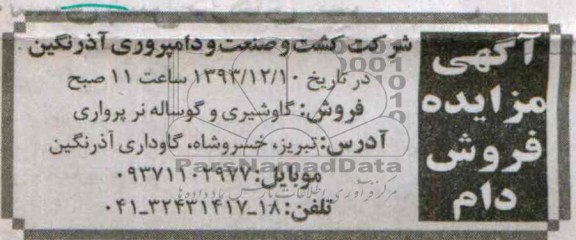 آگهی
مزایده
فروش
دام
شرکت کشت و صنعت و دامپروری آذرنگین
در تاریخ ۱۳۹۳/۱۲/۱۰ ساعت ۱۱ صبح
فروش: گاوشیری و گوساله نر پرواری
آدرس: تبریز، خسروشاه، گاوداری آذرنگین
موبایل: ۰۹۳۷۱۱۰۲۹۷۷
تلفن: ۱۸_۳۲۴۳۱۴۱۷_۰۴۱
ParsNamadData